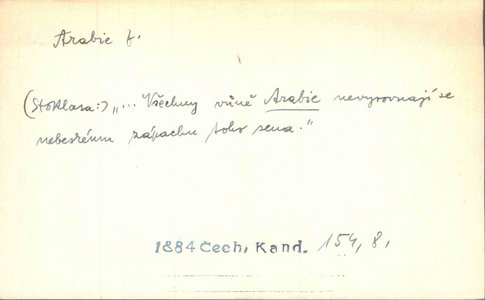 Arabie f.
(Stoklasa:) „... Všechny vůně Arabie nevyrovnají se
nebeskému zápachu toho sena.“
1884 Čech, Kand. 154, 8,